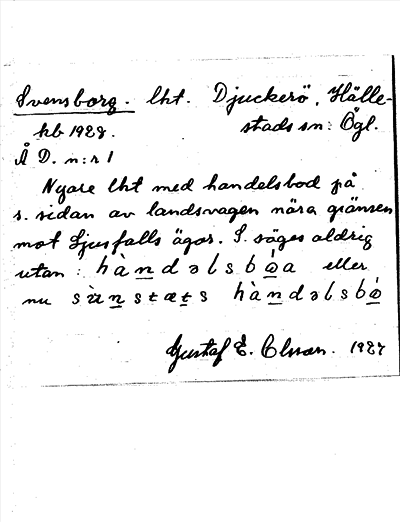 Svensborg. lht. Djuckerö, Hälle-
hb 1928. stads sn: Ögl.
Å D. n:r 1
Nyare lht med handelsbod på
s. sidan av landsvägen nära gränsen
mot Ljusfalls ägor. S. säges aldrig
utan: hàndəlsbóa eller
nu sànstæts hàndəlsbó
Gustaf E. Olsson. 1927